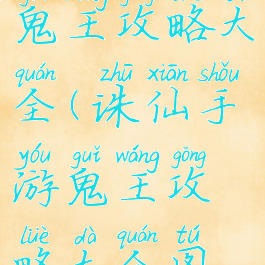 鬼王攻略大
quán zhū xiān shǒu
全(诛仙手
yóu guǐ wáng gōng
游鬼王攻
lüè dà quán tú
略大全图